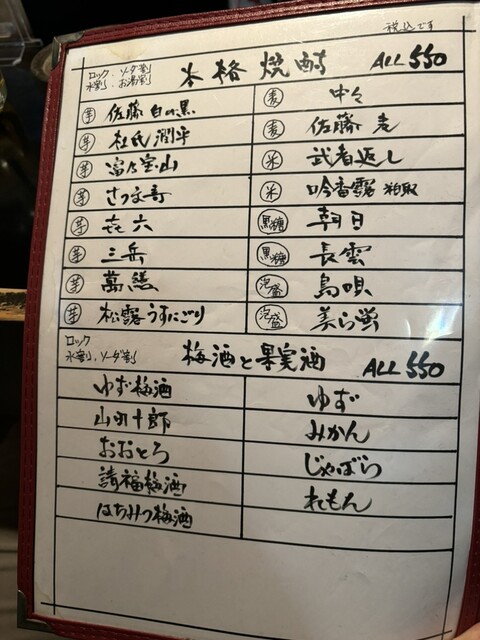 税込です
ロック、ソーダ割
水割、お湯割
本格焼酎 ALL 550
芋 佐藤 白の黒
麦 中々
芋 杜氏潤平
麦 佐藤 麦
芋 富乃宝山
米 武者返し
芋 さつま寿
米 吟香露 粕取
芋 㐂六
黒糖 朝日
芋 三岳
黒糖 長雲
芋 萬膳
泡盛 島唄
芋 松露うすにごり
泡盛 美ら蛍
ロック
水割、ソーダ割
梅酒と果実酒 ALL 550
ゆず梅酒
ゆず
山田十郎
みかん
おおとろ
じゃばら
請福梅酒
れもん
はちみつ梅酒